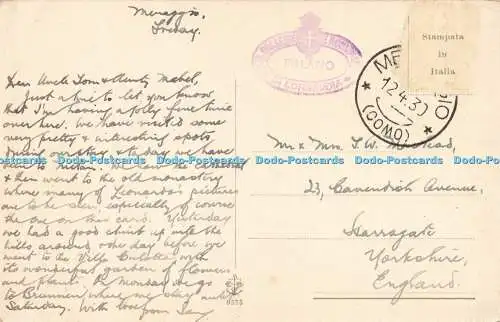 Menaggio,
Friday.
Dear Uncle Tom & Aunty Mabel,
Just a line to let you know
that I'm having a jolly fine time
over here. We have visited some
very pretty & interesting spots
during our stay & today we have
been to Milan. We saw the cathedral
& then went to the old monastery
where many of Leonardo's pictures
are to be seen, especially of course
the one on this card. Yesterday
we had a good climb up into the
hills around & the day before we
went to the Villa Carlotta with
its wonderful garden of flowers
and plants. On Monday we go
to Brunnen where we stay until
Saturday. With love from
MILANO
LOMBARDIA
12.4.30
(COMO)
Stampata
in
Italia
Mr & Mrs. T.W.
23, Cavendish Avenue,
Harrogate
Yorkshire,
England.
Dodo-Postcards Dodo-Postcards Dodo-Postcards Dodo-Postcards Dodo-Postcards Dodo-Postcards